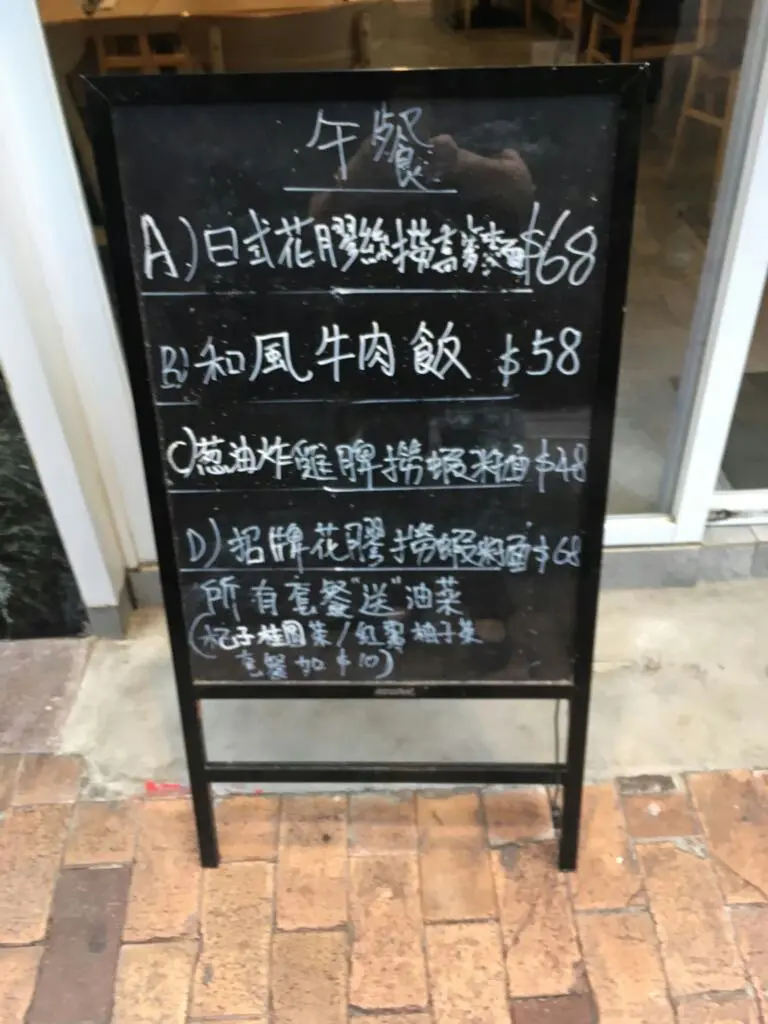 午餐
A)日式花膠絲撈蕎麥麵$68
B)和風牛肉飯 $58
C)葱油炸雞脾撈蝦籽面$48
D)招牌花膠撈蝦籽面$68
所有套餐"送"油菜
(杞子桂圓茶/紅棗柚子茶
套餐加$10)